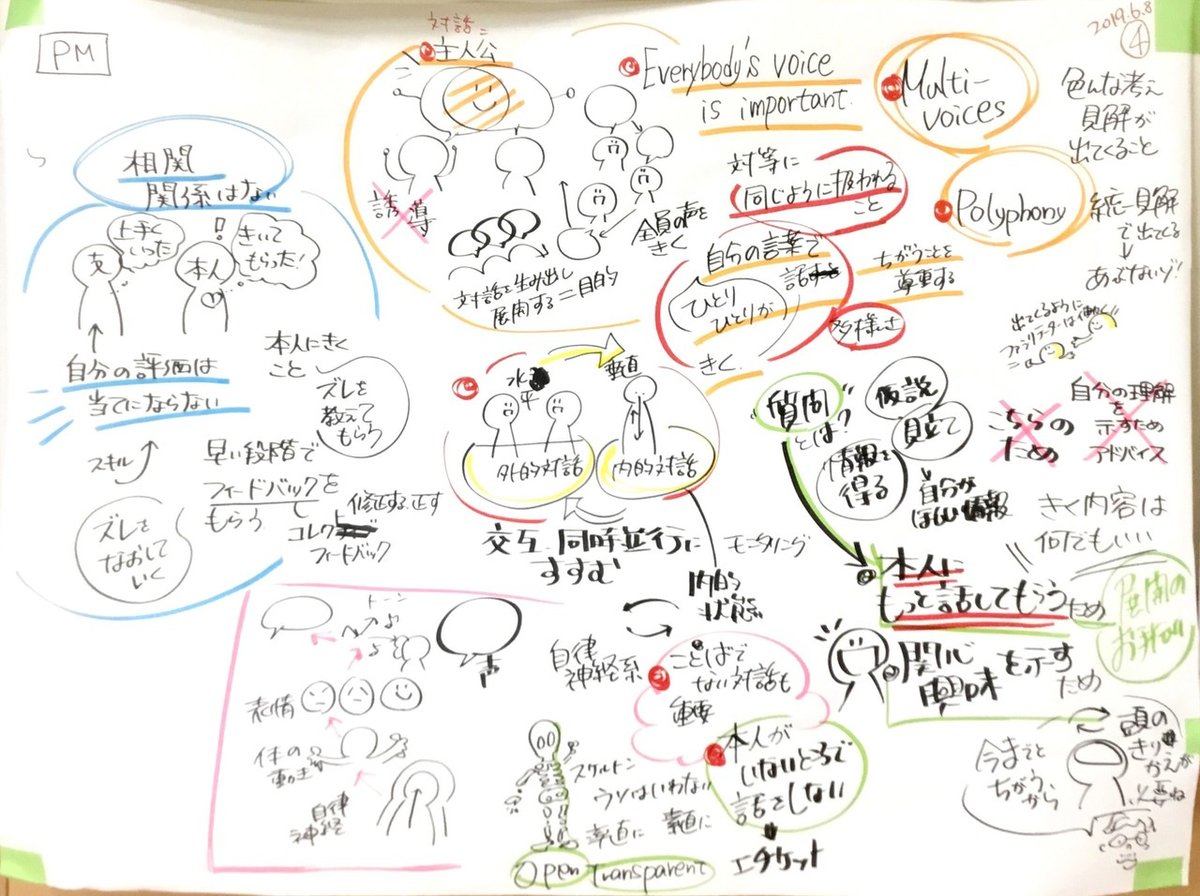 PM
2019.6.8
④
相関
関係はない
支
上手く
いった
本人
!
きいて
もらった!
自分の評価は
当てにならない
スキル
本人にきく
こと
ズレを
教えて
もらう
早い段階で
フィードバックを
もらう
修正する、正す
コレクト
フィードバック
ズレを
なおして
いく
対話=
主人公
誘導
対話を生み出し
展開する=目的
全員の声を
きく
Everybody's voice
is important.
対等に
同じように扱われる
こと
自分の言葉で
話す
ひとり
ひとりが
きく
ちがうことを
尊重する
多様さ
Multi-
voices
色んな考え
見解が
出てくること
Polyphony
統一見解
で出てくる
あぶないゾ!
出てくるように
ファシリテーターは働く
水平
垂直
外的対話
内的対話
交互、同時並行に
すすむ
モニタリング
内的
状態
"質問"
とは?
仮説
見立て
情報を
得る
自分が
ほしい情報
こちらの
ため
自分の理解
を
示すため
アドバイス
きく内容は
何でもいい
本人に
もっと話してもらうため
展開の
お手伝い
関心
興味を示す
ため
頭の
きりかえが
必要ね
今までと
ちがうから
トーン
表情
体の
動き
自律
神経
自律
神経系
ことばで
ない対話も
重要
本人が
いないところで
話をしない
エチケット
スケルトン
ウソはいわない
素直に 素直に
Open Transparent